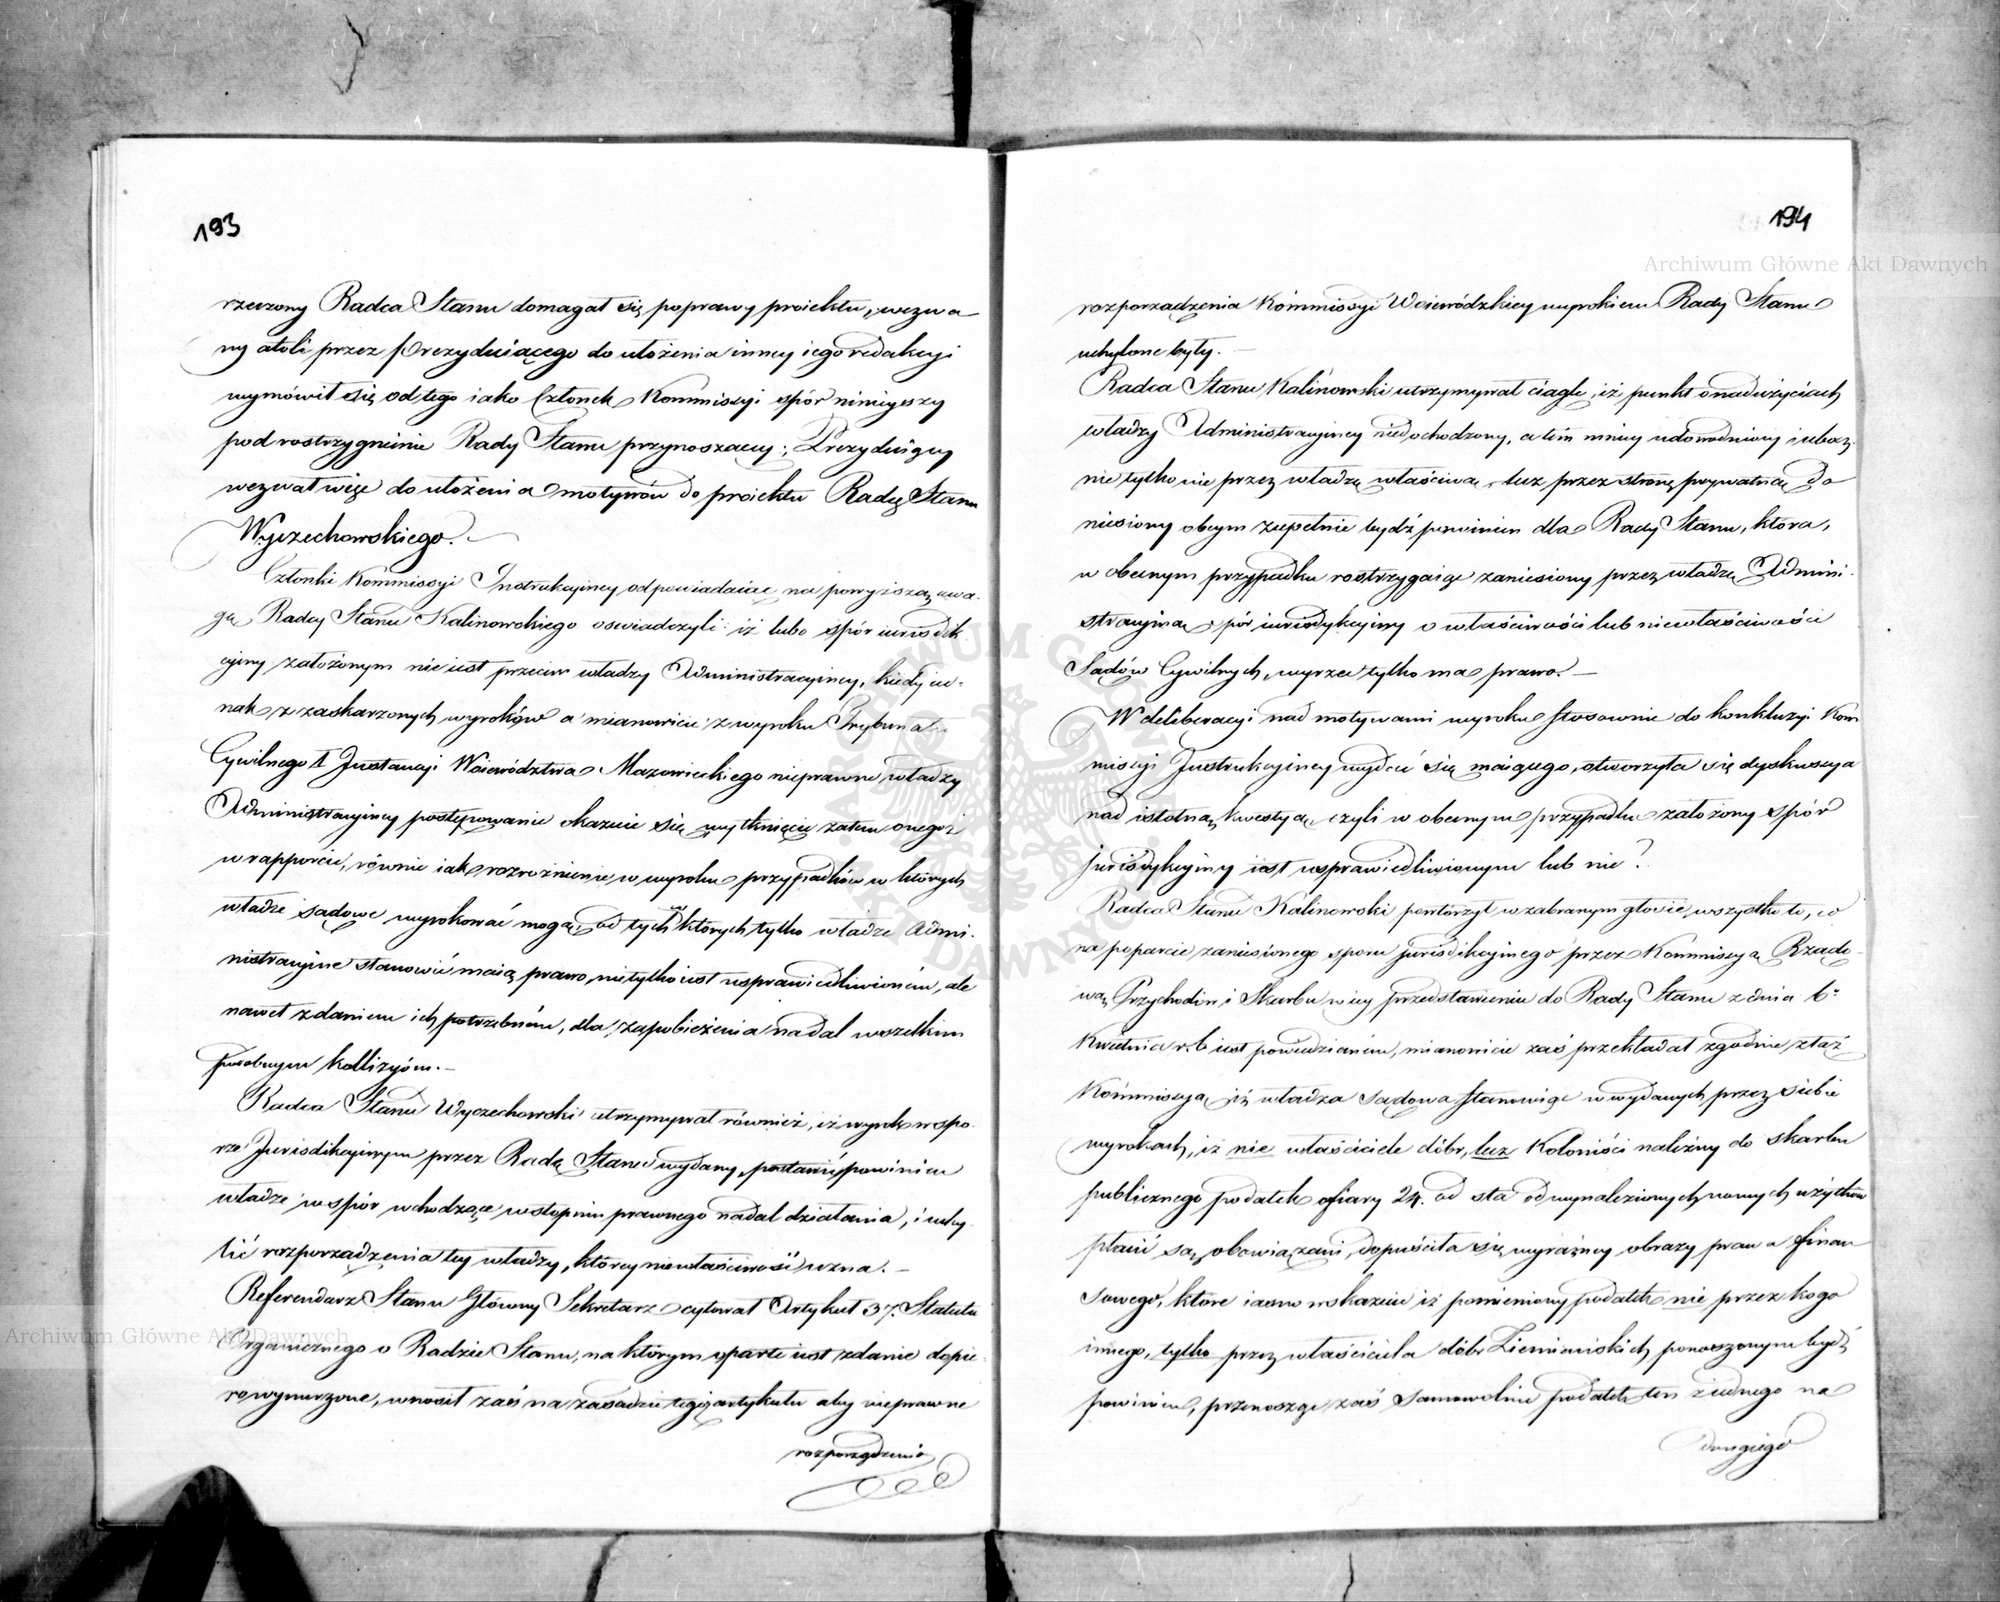 193
rzeczony Radca Stanu domagał się poprawy proiektu, wezwa
ny atoli przez Prezyduiącego do ułożenia inney iego redakcyi
wymówił się od tego iako Członek Kommissyi spór ninieyszy
pod rostrzygnienie Rady Stanu przynoszącey; Prezyduiący
wezwał więc do ułożenia motywów do proiektu Radcę Stanu
Wyczechowskiego.
Członki Kommissyi Instrukcyiney odpowiadaiąc na powyższą uwa-
gę Radcy Stanu Kalinowskiego oswiadczyli: iż lubo spór iurisdik
cyiny założonym nie iest przeciw władzy Administracyiney, kiedy ied-
nak z zaskarzonych wyroków a mianowicie z wyroku Trybunału
Cywilnego I Instancyi Woiewództwa Mazowieckiego nieprawne władzy
Administracyiney postępowanie okazuie się, wytknięcie zatem onegoż
w rapporcie, równie iak rozróżnienie w wyroku przypadków w których
władze sądowe wyrokować mogą, od tych w których tylko władze Admi-
nistracyine stanowić maią prawo, nietylko iest usprawiedliwioném, ale
nawet zdaniem ich potrzebném, dla zapobieżenia nadal wszelkim
podobnym kollizyóm.
Radca Stanu Wyczechowski utrzymywał również, iż wyrok w spo-
rze Jurisdikcyinym przez Radę Stanu wydany, postawić powinien
władze w spór wchodzące w stopniu prawnego nadal działania, i uchy-
lić rozporządzenia tey władzy, którey niewłaściwość uzna.
Referendarz Stanu Główny Sekretarz cytował Artykuł 37. Statutu
Organicznego o Radzie Stanu, na którym oparte iest zdanie dopie-
ro wynurzone, wnosił zaś na zasadzie tegoż artykułu aby nieprawne
rozporządzenia
194
rozporządzenia Kommissyi Woiewódzkiey wyrokiem Rady Stanu
uchylone były.
Radca Stanu Kalinowski utrzymywał ciągle, iż punkt o nadużyciach
władzy Administracyiney niedochodzony, a tém mniey udowodniony i ubocz-
nie tylko nie przez władzę właściwą, lecz przez stronę prywatną do
niesiony obcym zupełnie bydź powinien dla Rady Stanu, która,
w obecnym przypadku rostrzygaiąc zaniesiony przez władzę Admini-
stracyiną spór iurisdykcyiny o właściwości lub niewłaściwości
Sądów Cywilnych, wyrzec tylko ma prawo.
W deliberacyi nad motywami wyroku stosownie do konkluzyi Kom
missyi Instrukcyiney wydać się maiącego, otworzyła się dyskussya
nad istotną kwestyą, czyli w obecnym przypadku założony spór
jurisdykcyiny iest usprawiedliwionym lub nie?
Radca Stanu Kalinowski powtórzył w zabranym głosie wszystko to, co
na poparcie zaniesionego sporu jurisdikcyinego przez Kommissyą Rządo-
wą Przychodów i Skarbu w iey przedstawieniu do Rady Stanu z dnia 6º
Kwietnia r. b. iest powiedzianém, mianowicie zaś przekładał zgodnie z taż
Kommissyą, iż władza Sądowa stanowiąc w wydanych przez siebie
wyrokach, iż nie właściciele dóbr, lecz Koloniści należny do skarbu
publicznego podatek ofiary 24. od sta od wynalezionych nowych użytków
płacić są obowiązani, dopuściła się wyraźney obrazy prawa finan
sowego, które iasno wskazuie iż pomieniony podatek nie przez kogo
innego, tylko przez właściciela dóbr Ziemiańskich ponoszonym bydź
powinien, przenosząc zaś samowolnie podatek ten z iednego na
drugiego
Archiwum Główne Akt Dawnych
Archiwum Główne Akt Dawnych